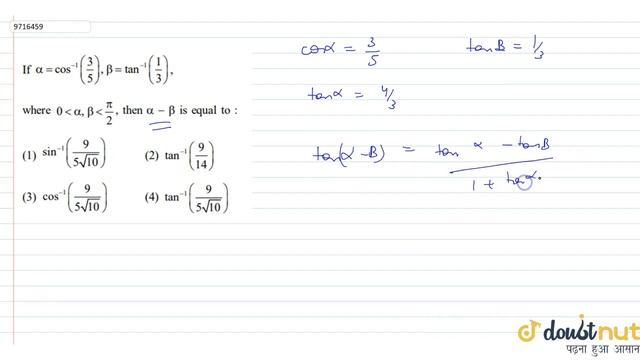 9716459
If α = cos⁻¹(3/5), β = tan⁻¹(1/3),
where 0 < α, β < π/2, then α − β is equal to :
(1) sin⁻¹(9/5√10) (2) tan⁻¹(9/14)
(3) cos⁻¹(9/5√10) (4) tan⁻¹(9/5√10)
cosα = 3/5 tanB = 1/3
tanα = 4/3
tan(α − B) = (tan α − tanB)/(1 + tanα.
doubtnut
पढ़ना हुआ आसान